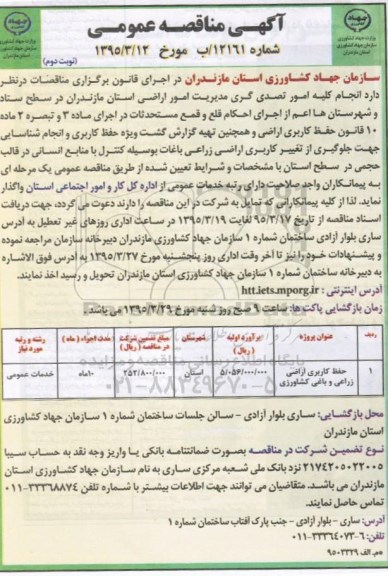 وزارت جهاد کشاورزی
سازمان جهاد کشاورزی
استان مازندران
آگهی مناقصه عمومی
شماره ۱۲۱۶۱/ب مورخ ۱۳۹۵/۳/۱۲
(نوبت دوم)
سازمان جهاد کشاورزی استان مازندران در اجرای قانون برگزاری مناقصات درنظر
دارد انجام کلیه امور تصدی گری مدیریت امور اراضی استان مازندران در سطح ستاد
و شهرستان ها اعم از اجرای احکام قلع و قمع مستحدثات در اجرای ماده ۳ و تبصره ۲ ماده
۱۰ قانون حفظ کاربری اراضی و همچنین تهیه گزارش گشت ویژه حفظ کاربری و انجام شناسایی
جهت جلوگیری از تغییر کاربری اراضی زراعی باغات بوسیله کنترل با منابع انسانی در قالب
حجمی در سطح استان با مشخصات و شرایط تعیین شده از طریق مناقصه عمومی یک مرحله ای
به پیمانکاران واجد صلاحیت دارای رتبه خدمات عمومی از اداره کل کار و امور اجتماعی استان واگذار
نماید. لذا از کلیه پیمانکارانی که تمایل به شرکت در این مناقصه را دارند دعوت می گردد، جهت دریافت
اسناد مناقصه از تاریخ ۹۵/۳/۱۷ لغایت ۱۳۹۵/۳/۱۹ در ساعات اداری روزهای غیر تعطیل به آدرس
ساری بلوار آزادی ساختمان شماره ۱ سازمان جهاد کشاورزی مازندران دبیرخانه سازمان مراجعه نموده
و پیشنهادات خود را نیز تا آخر وقت اداری روز پنجشنبه مورخ ۱۳۹۵/۳/۲۷ به آدرس فوق الاشاره
به دبیرخانه ساختمان شماره ۱ سازمان جهاد کشاورزی استان مازندران تحویل و رسید اخذ نمایند.
آدرس اینترنتی : htt.iets.mporg.ir
زمان بازگشایی پاکت ها: ساعت ۹ صبح روز شنبه مورخ ۱۳۹۵/۳/۲۹ می باشد.
ردیف عنوان پروژه برآورد اولیه (ریال) شهرستان مبلغ تضمین شرکت در مناقصه (ریال) مدت اجراء (ماه) رشته و رتبه مورد نیاز
۱ حفظ کاربری اراضی زراعی و باغی کشاورزی ۵/۰۵۶/۰۰۰/۰۰۰ استان ۲۵۲/۸۰۰/۰۰۰ ۱۰ماه خدمات عمومی
۰۲۱-۸۸۳۴۹۶۷۰-۵
محل بازگشایی: ساری بلوار آزادی - سالن جلسات ساختمان شماره ۱ سازمان جهاد کشاورزی
استان مازندران
نوع تضمین شرکت در مناقصه بصورت ضمانتنامه بانکی یا واریز وجه نقد به حساب سیبا
۲۱۷۴۲۰۵۰۲۲۰۰۵ نزد بانک ملی شعبه مرکزی ساری به نام سازمان جهاد کشاورزی استان
مازندران می باشد. متقاضیان می توانند جهت اطلاعات بیشتر با شماره تلفن ۳۳۳۶۸۸۷۴-۰۱۱
تماس حاصل نمایند.
آدرس: ساری - بلوار آزادی - جنب پارک آفتاب ساختمان شماره ۱
تلفن: ۶-۳۳۳۶۴۰۷۳-۰۱۱
هم. الف ۹۵۰۳۳۲۹